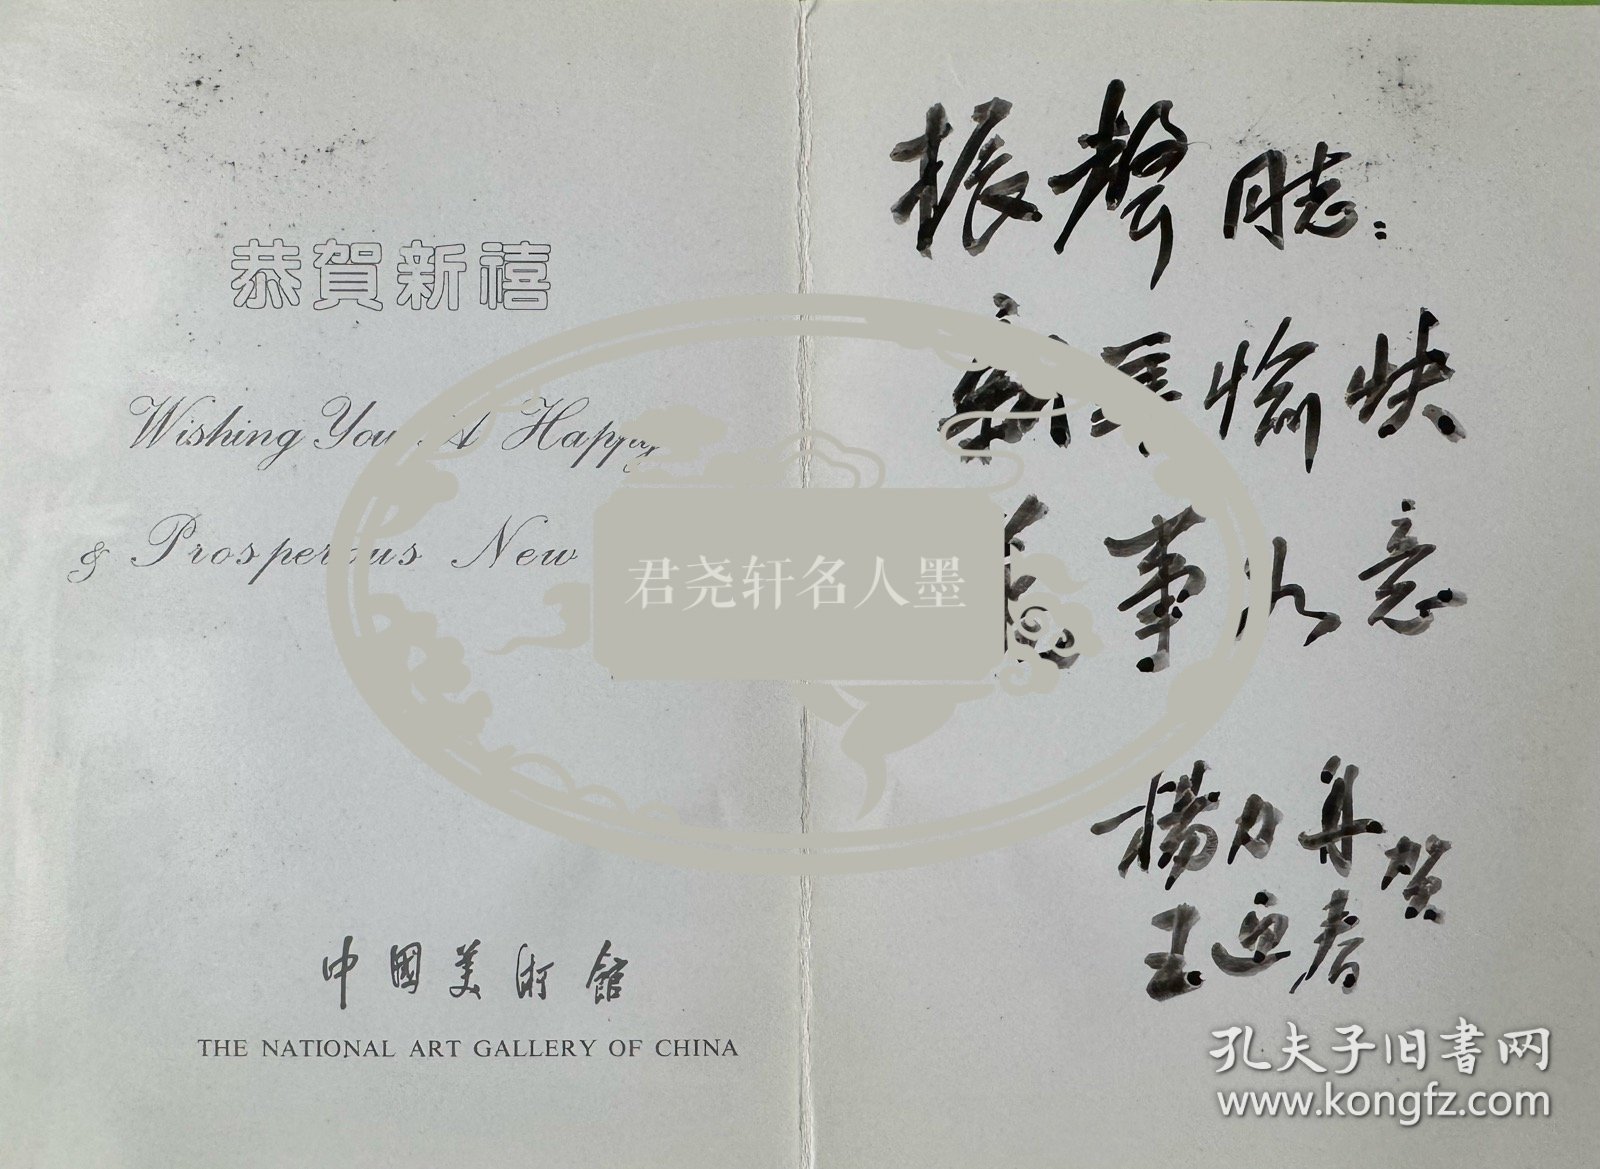 恭賀新禧
Wishing You A Happy
& Prosperous New
中國美術館
THE NATIONAL ART GALLERY OF CHINA
振聲同志:
新年愉快
萬事如意
楊力舟
王迎春
贺
君尧轩名人墨
孔夫子旧书网
www.kongfz.com